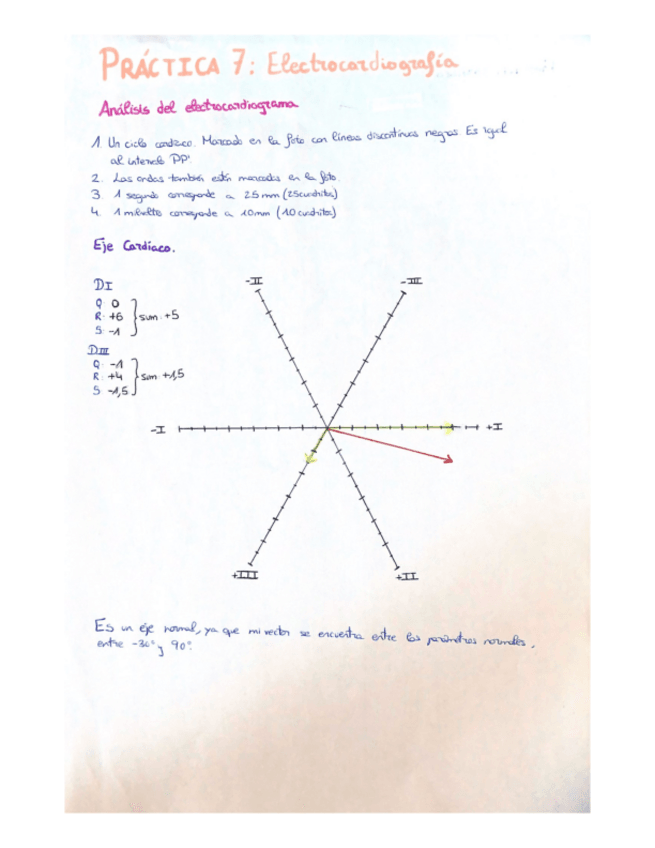 PRÁCTICA 7: Electrocardiografía
Análisis del electrocardiograma
1. Un ciclo cardíaco. Marcado en la foto con líneas discontinuas negras. Es igual
al intervalo PP'.
2. Las ondas también están marcadas en la foto.
3. 1 segundo corresponde a 25mm (25cuadritos)
4. 1 milivoltio corresponde a 10mm (10 cuadritos)
Eje Cardíaco.
DI
Q: 0
R: +6
S: -1
sum: +5
DIII
Q: -1
R: +4
S: -1,5
sum: +1,5
-II
-III
-I
+I
+III
+II
Es un eje normal, ya que mi vector se encuentra entre los parámetros normales,
entre -30° y 90°.